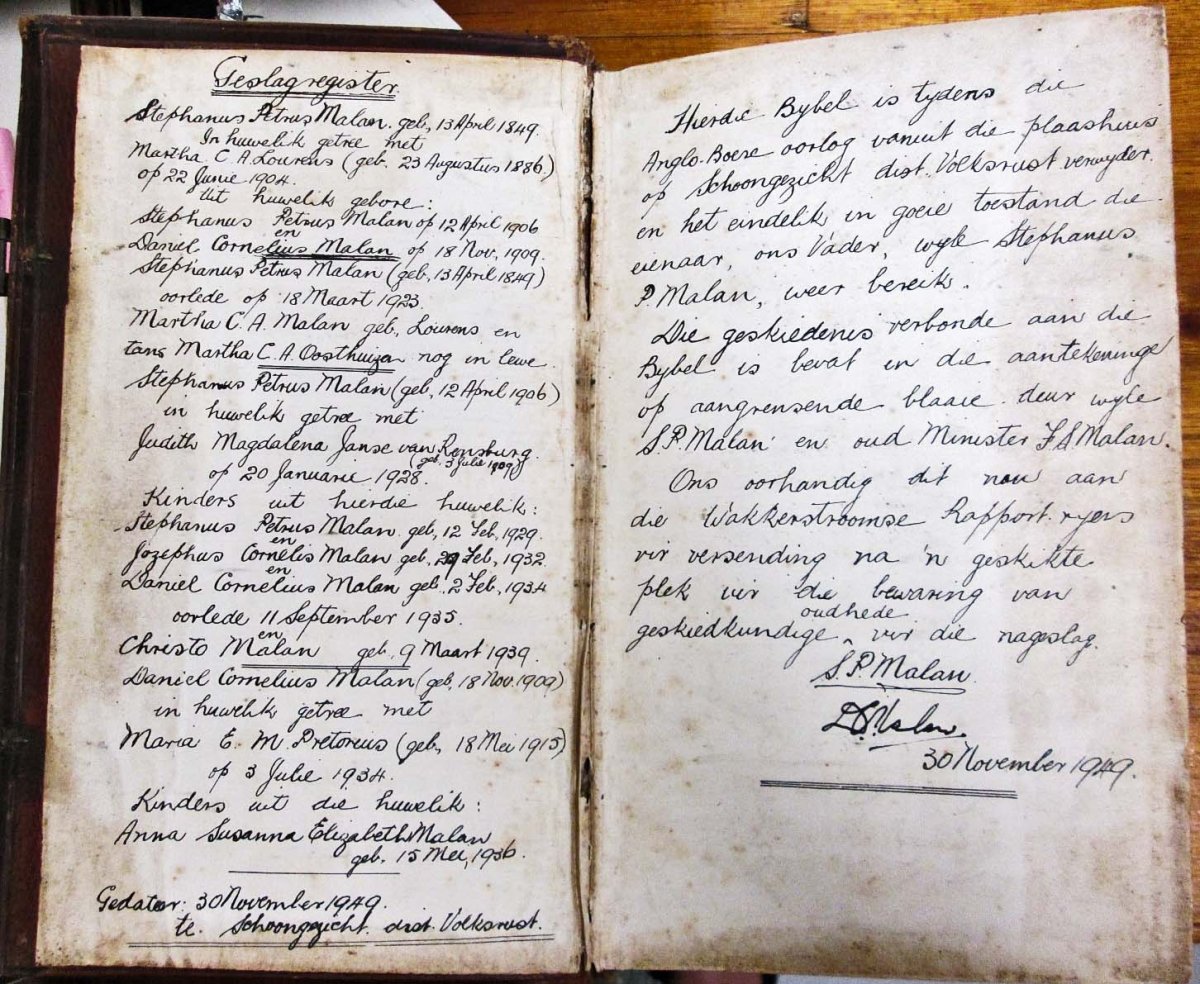 Geslagregister.
Stephanus Petrus Malan. geb, 13 April 1849.
In huwelik getree met
Martha C A Lourens (geb, 23 Augustus 1886)
op 22 Junie 1904.
Uit huwelik gebore:
Stephanus Petrus Malan op 12 April 1906
en
Daniel Cornelius Malan op 18 Nov, 1909.
Stephanus Petrus Malan (geb, 13 April 1849)
oorlede op 18 Maart 1923.
Martha C. A. Malan geb, Lourens en
tans Martha C. A. Oosthuizen nog in lewe.
Stephanus Petrus Malan (geb, 12 April 1906)
in huwelik getree met
Judith Magdalena Janse van Rensburg.
(geb. 3 Julie 1909)
op 20 Januarie 1928.
Kinders uit hierdie huwelik:
Stephanus Petrus Malan geb, 12 Feb, 1929.
en
Jozephus Cornelis Malan geb, 29 Feb, 1932.
en
Daniel Cornelius Malan geb. 2 Feb, 1934
oorlede 11 September 1935.
en
Christo Malan geb, 9 Maart 1939.
Daniel Cornelius Malan (geb, 18 Nov. 1909)
in huwelik getree met
Maria E. M. Pretorius (geb, 18 Mei 1915)
op 3 Julie 1934.
Kinders uit die huwelik:
Anna Susanna Elizabeth Malan
geb. 15 Mei, 1936.
Gedateer: 30 November 1949.
te. Schoongezicht. dist. Volksrust.
Hierdie Bybel is tydens die
Anglo-Boere oorlog vanuit die plaashuis
op Schoongezicht dist. Volksrust verwyder.
en het eindelik in goeie toestand die
eienaar, ons Vader, wyle Stephanus
P. Malan, weer bereik.
Die geskiedenis verbonde aan die
Bybel is bevat in die aantekeninge
op aangrensende blaaie deur wyle
S.P. Malan en oud Minister F S Malan.
Ons oorhandig dit nou aan
die Wakkerstroomse Rapport-ryers
vir versending na 'n geskikte
plek vir die bewaring van
oudhede
geskiedkundige ^ vir die nageslag.
S. P. Malan.
D C Malan.
30 November 1949.